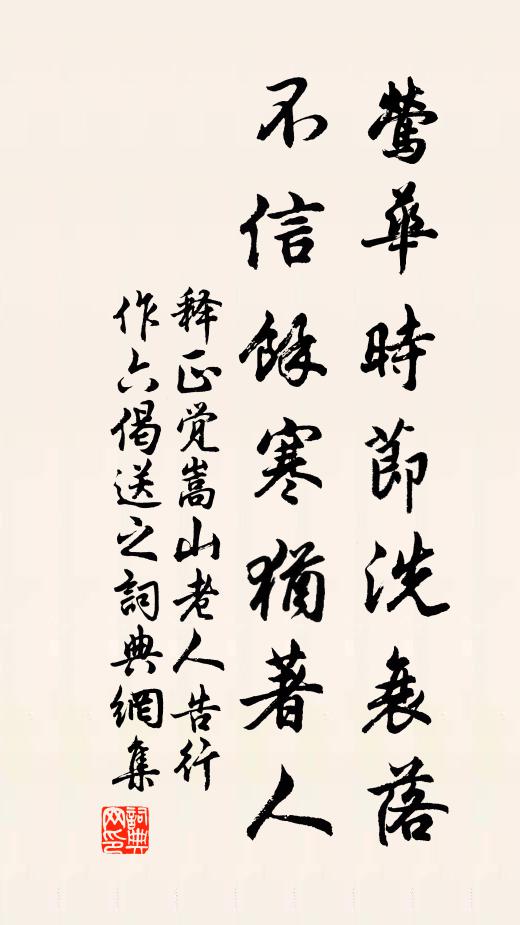 鶯華時節洗衰落
不信餘寒猶著人
释正覚嵩山老人告行
作六偈送之詞典網集
詞典网印